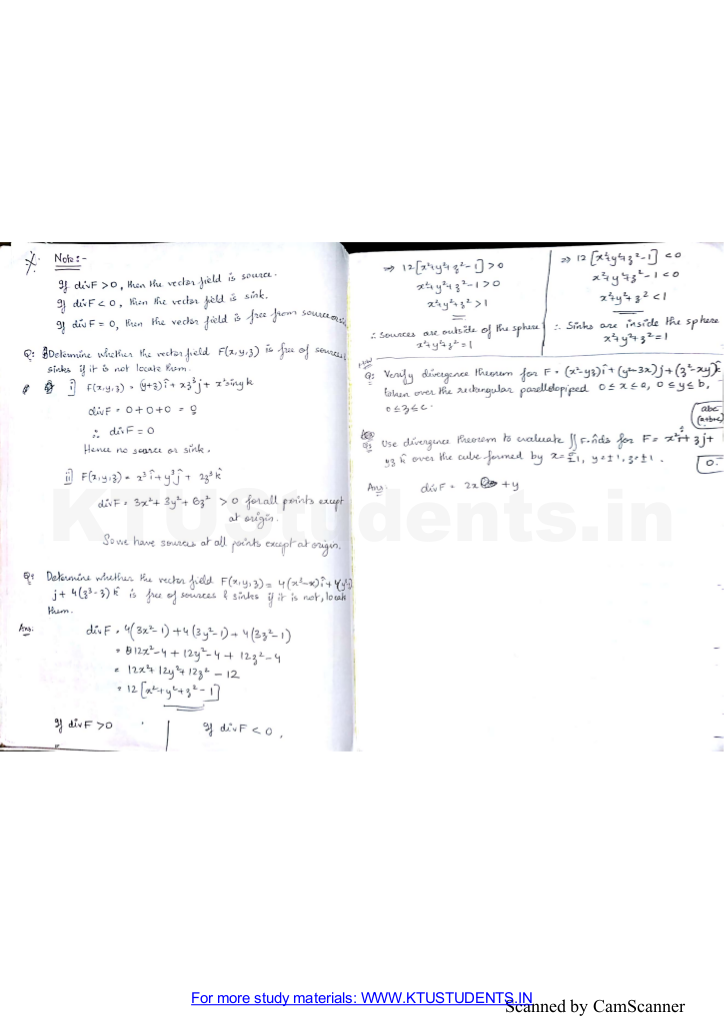 Note :-
If divF > 0, then the vector field is source.
If divF < 0, then the vector field is sink.
If divF = 0, then the vector field is free from source or sin
Q: Determine whether the vector field F(x,y,z) is free of sources
sinks if it is not locate them.
i) F(x,y,z) = (y+z)î + xz³j + x²sinyk
divF = 0+0+0 = 0
∴ divF = 0
Hence no source or sink.
ii) F(x,y,z) = x³î + y³ĵ + 2z³k̂
divF = 3x² + 3y² + 6z² > 0 for all points except
at origin.
So we have sources at all points except at origin.
Q: Determine whether the vector field F(x,y,z) = 4(x³-x)î + 4(y³-y)
j + 4(z³-z)k̂ is free of sources & sinks if it is not, locate
them.
Ans: divF = 4(3x²-1) + 4(3y²-1) + 4(3z²-1)
= 12x²-4 + 12y²-4 + 12z²-4
= 12x² + 12y² + 12z² - 12
= 12[x²+y²+z²-1]
If divF > 0
If divF < 0,
⇒ 12[x²+y²+z²-1] > 0
x²+y²+z²-1 > 0
x²+y²+z² > 1
∴ Sources are outside of the sphere
x²+y²+z² = 1
⇒ 12[x²+y²+z²-1] < 0
x²+y²+z²-1 < 0
x²+y²+z² < 1
∴ Sinks are inside the sphere
x²+y²+z² = 1
Q: Verify divergence theorem for F = (x²-yz)î + (y²-zx)j + (z²-xy)k̂
taken over the rectangular parellelopiped 0 ≤ x ≤ a, 0 ≤ y ≤ b,
0 ≤ z ≤ c.
abc
(a+b+c)
Q: Use divergence theorem to evaluate ∬ F·n̂ds for F = x²î + zj +
yzk̂ over the cube formed by x=±1, y=±1, z=±1.
0.
Ans: divF = 2x + y
KTUStudents.in
For more study materials: WWW.KTUSTUDENTS.IN
Scanned by CamScanner